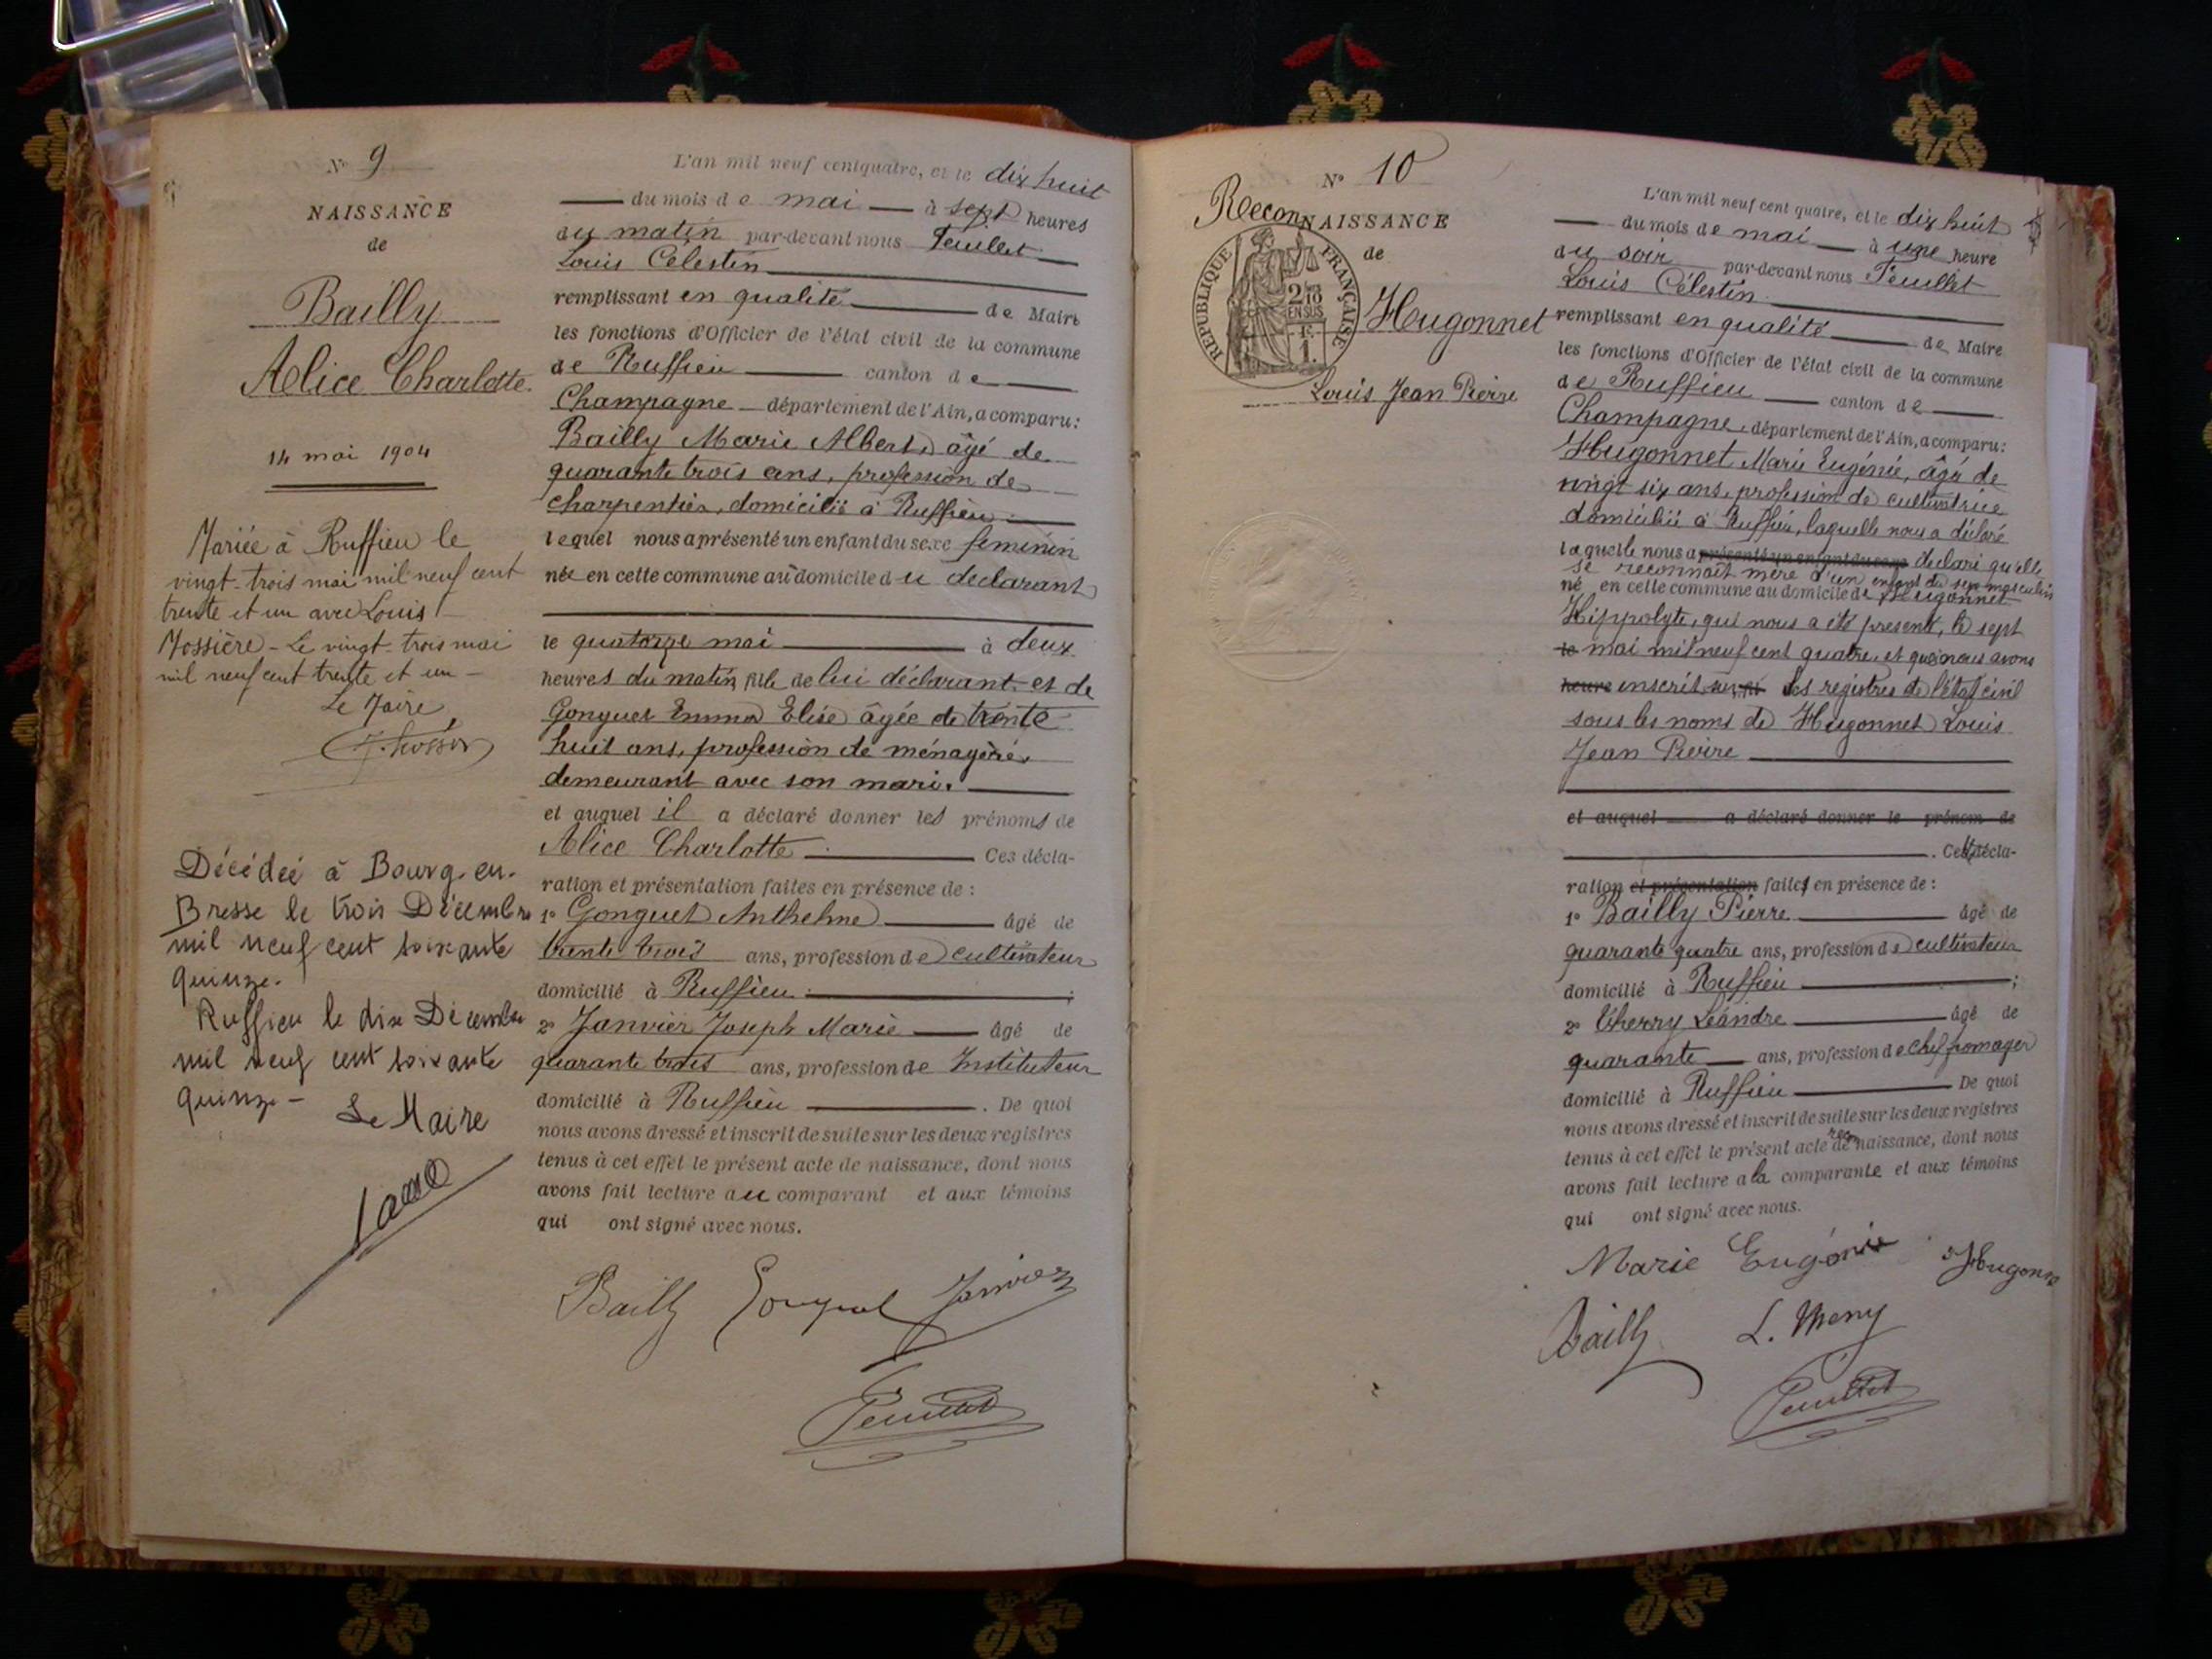 N° 9
NAISSANCE
de
Bailly
Alice Charlotte
14 mai 1904
Mariée à Ruffieu le
vingt-trois mai mil neuf cent
trente et un avec Louis
Mossière - Le vingt-trois mai
mil neuf cent trente et un -
Le Maire,
Décédée à Bourg-en-
Bresse le trois Décembre
mil neuf cent soixante
quinze.
Ruffieu le dix Décembre
mil neuf cent soixante
quinze -
Le Maire
L'an mil neuf cent quatre, et le dix huit
du mois de mai à sept heures
du matin par-devant nous Feuillet
Louis Célestin
remplissant en qualité de Maire
les fonctions d'Officier de l'état civil de la commune
de Ruffieu canton de
Champagne département de l'Ain, a comparu:
Bailly Marie Albert, âgé de
quarante trois ans, profession de
charpentier, domicilié à Ruffieu
lequel nous a présenté un enfant du sexe féminin
née en cette commune au domicile du déclarant
le quatorze mai à deux
heures du matin, fille de lui déclarant et de
Gonguet Emma Elise âgée de trente
huit ans, profession de ménagère,
demeurant avec son mari.
et auquel il a déclaré donner les prénoms de
Alice Charlotte. Ces décla-
ration et présentation faites en présence de :
1° Gonguet Anthelme âgé de
trente trois ans, profession de cultivateur
domicilié à Ruffieu ;
2° Janvier Joseph Marie âgé de
quarante trois ans, profession de Instituteur
domicilié à Ruffieu . De quoi
nous avons dressé et inscrit de suite sur les deux registres
tenus à cet effet le présent acte de naissance, dont nous
avons fait lecture au comparant et aux témoins
qui ont signé avec nous.
Bailly Gonguet Janvier
Feuillet
N° 10
ReconNAISSANCE
de
REPUBLIQUE FRANÇAISE
2/10
EN SUS
1 F.
Hugonnet
Louis Jean Pierre
L'an mil neuf cent quatre, et le dix huit
du mois de mai à une heure
du soir par-devant nous Feuillet
Louis Célestin
remplissant en qualité de Maire
les fonctions d'Officier de l'état civil de la commune
de Ruffieu canton de
Champagne, département de l'Ain, a comparu:
Hugonnet Marie Eugénie, âgé de
vingt six ans, profession de cultivatrice
domiciliée à Ruffieu, laquelle nous a déclaré
laquelle nous a présenté un enfant du sexe déclaré qu'elle
se reconnaît mère d'un enfant du sexe masculin
né en cette commune au domicile de Hugonnet
Hippolyte, qui nous a été présenté, le sept
le mai mil neuf cent quatre, et que nous avons
heure inscrit les registres de l'état civil
sous les noms de Hugonnet Louis
Jean Pierre
et auquel a déclaré donner le prénom de
. Cette décla-
ration et présentation faites en présence de :
1° Bailly Pierre âgé de
quarante quatre ans, profession de cultivateur
domicilié à Ruffieu ;
2° Thery Léandre âgé de
quarante ans, profession de chef fromager
domicilié à Ruffieu De quoi
nous avons dressé et inscrit de suite sur les deux registres
tenus à cet effet le présent acte de reconnaissance, dont nous
avons fait lecture à la comparante et aux témoins
qui ont signé avec nous.
Marie Eugénie Hugonnet
Bailly L. Thery
Feuillet